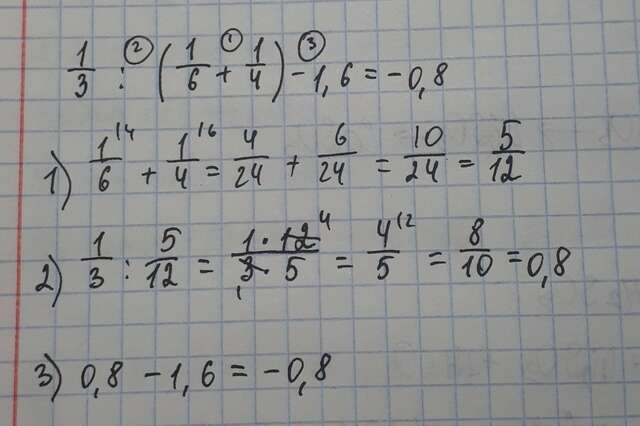 1/3 : ② (1/6 + ① 1/4) ③ - 1,6 = -0,8
1) 1/6 ⁽⁴ + 1/4 ⁽⁶ = 4/24 + 6/24 = 10/24 = 5/12
2) 1/3 : 5/12 = 1 · 12 ⁴ / 3 ₁ · 5 = 4/5 ⁽² = 8/10 = 0,8
3) 0,8 - 1,6 = -0,8